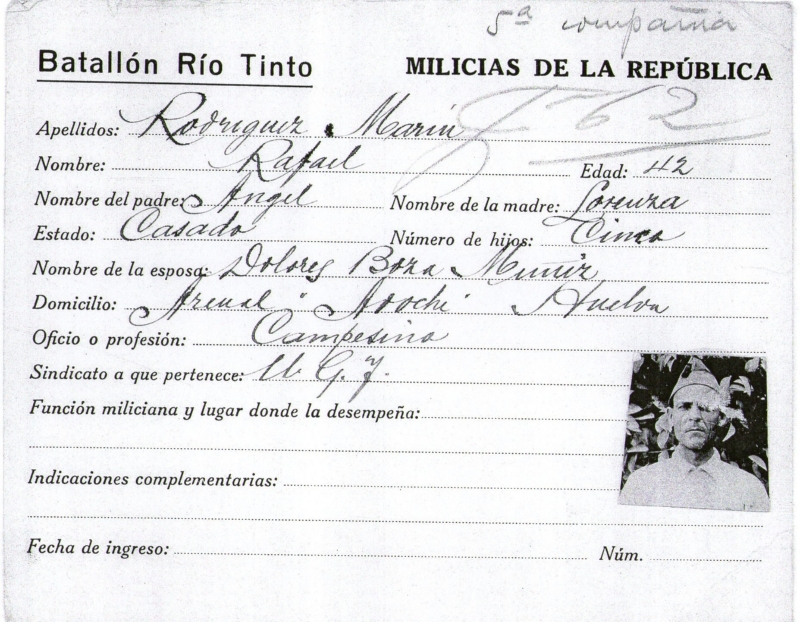 5ª compañia
Batallón Río Tinto MILICIAS DE LA REPÚBLICA
Apellidos: Rodriguez Marin
762
Nombre: Rafael Edad: 42
Nombre del padre: Angel Nombre de la madre: Lorenza
Estado: Casado Número de hijos: Cinco
Nombre de la esposa: Dolores Boza Muñiz
Domicilio: Arenal "Aroche" Huelva
Oficio o profesión: Campesino
Sindicato a que pertenece: U. G. T.
Función miliciana y lugar donde la desempeña:
Indicaciones complementarias:
Fecha de ingreso: Núm.